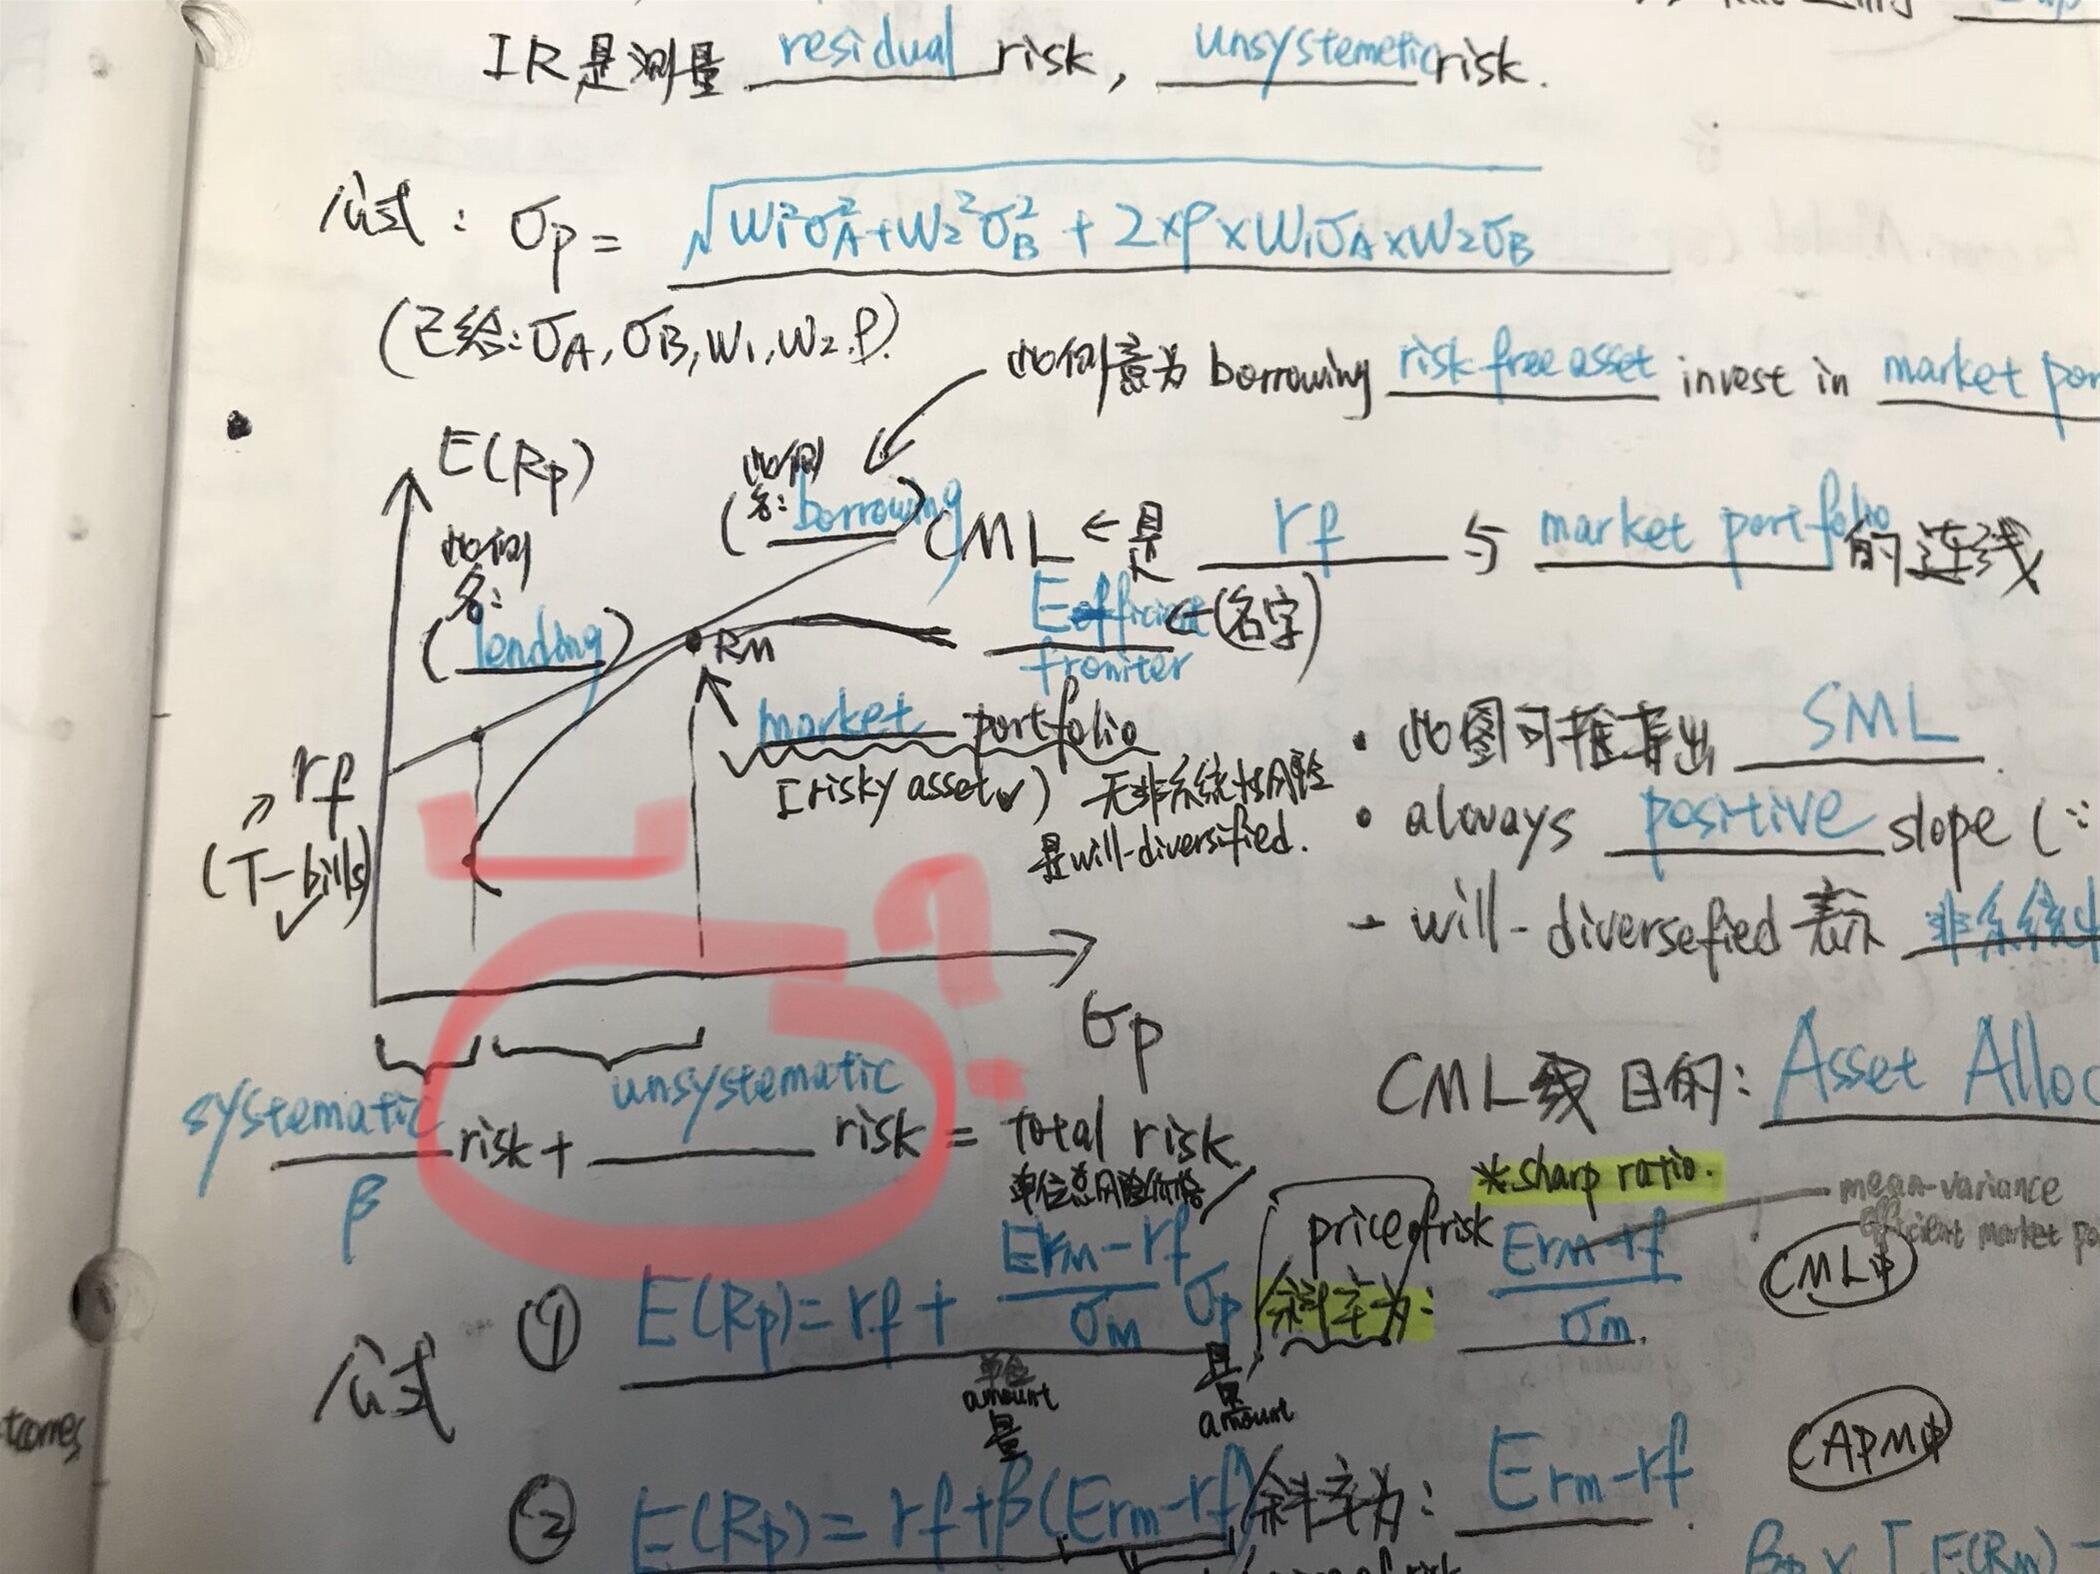 IR是测量 residual risk, unsystemetic risk.
公式: σp = √W₁²σA²+W₂²σB² + 2×ρ×W₁σA×W₂σB
(已给: σA, σB, W₁, W₂, ρ)
此侧意为 borrowing risk free asset invest in market por
E(Rp)
此侧
名:
(lending)
此侧
(名: borrowing)
CML ← 是 rf 与 market portfolio 的连线
Efficient ←(名字)
froniter
RM
market portfolio
[risky asset✓) 无非系统性风险
是will-diversified.
rf
(T-bills)
• 此图可推导出 SML.
• always positive slope (∵
- will-diversefied 表示 非系统
σp
?
systematic risk + unsystematic risk = total risk
β
CML线 目的: Asset Alloc
单位总风险价格
price of risk
*sharp ratio.
mean-variance
efficient market po
公式
① E(Rp)=rf+ Erm-rf/σM σp 斜率为: Erm-rf/σm.
CML中
单位
amount
量
amount
② E(Rp)=rf+β(Erm-rf) 斜率为: Erm-rf.
CAPM中
tcomes